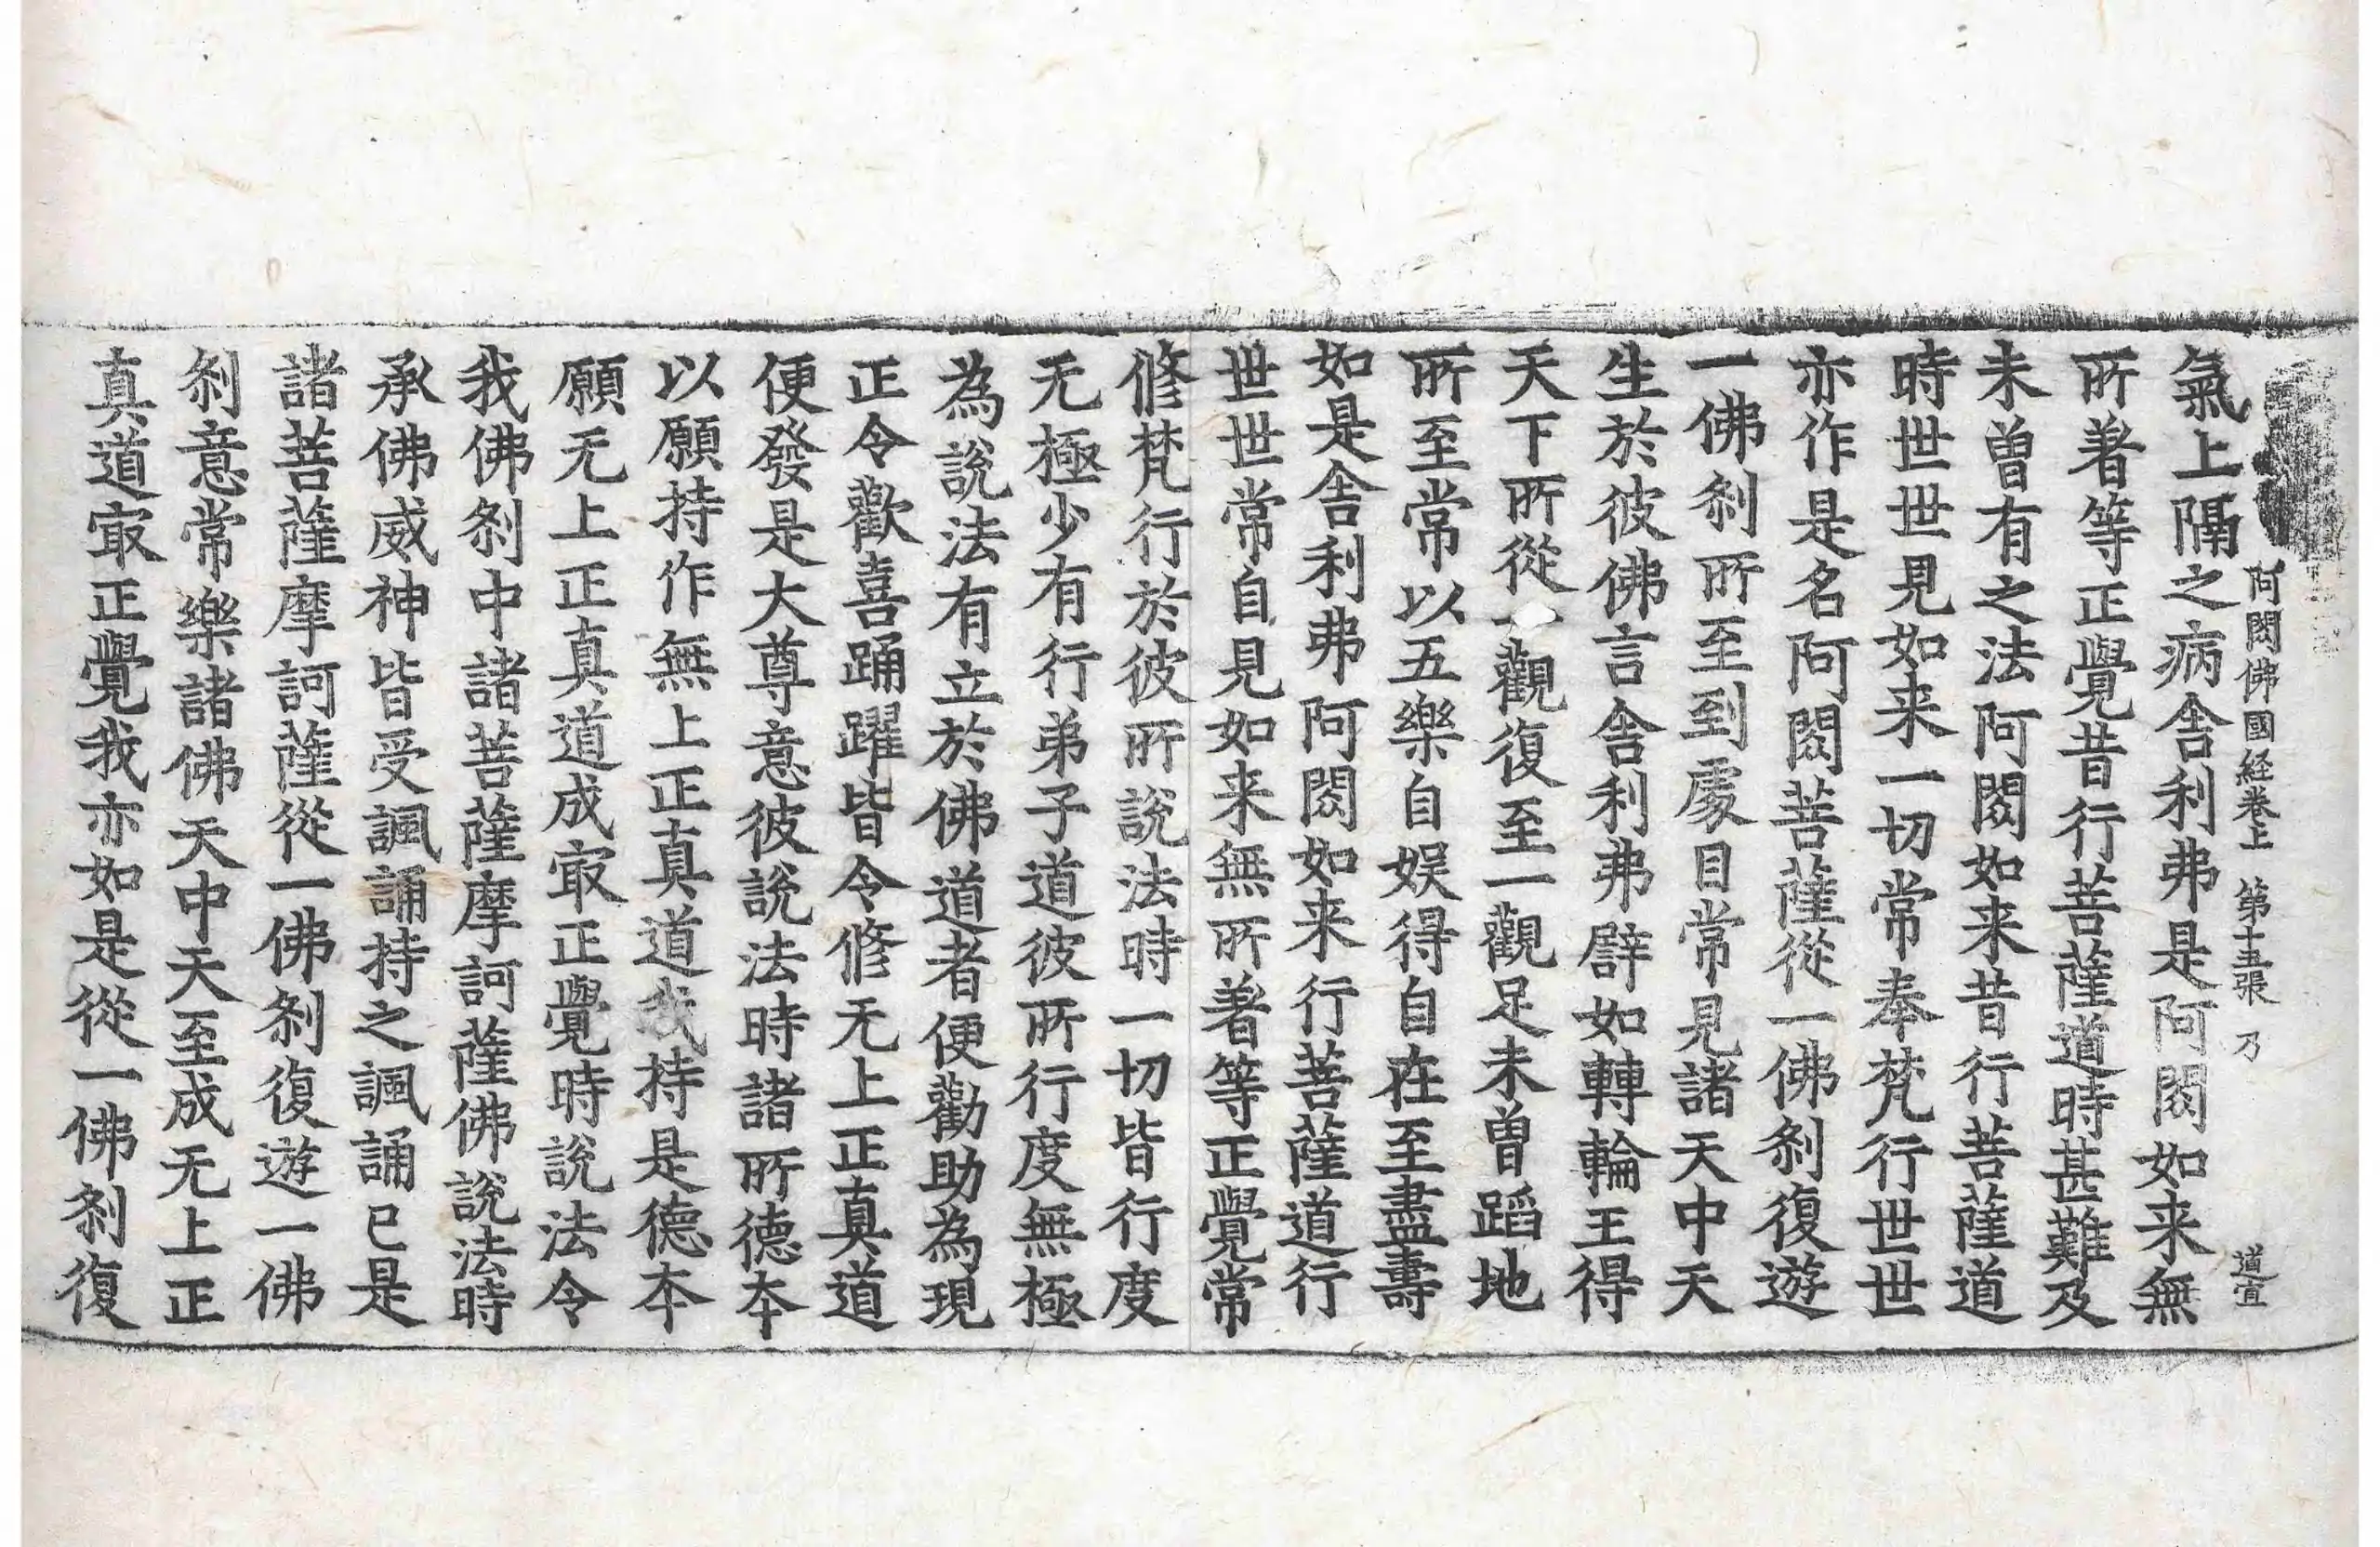 阿閦佛國経卷上 第十五張 乃 道宣
氣上隔之病舎利弗是阿閦如来無
所著等正覺昔行菩薩道時甚難及
未曽有之法阿閦如来昔行菩薩道
時世世見如来一切常奉梵行世世
亦作是名阿閦菩薩從一佛刹復遊
一佛刹所至到處目常見諸天中天
生於彼佛言舎利弗辟如轉輪王得
天下所從一觀復至一觀足未曽蹈地
所至常以五樂自娛得自在至盡壽
如是舎利弗阿閦如来行菩薩道行
世世常自見如来無所著等正覺常
修梵行於彼所說法時一切皆行度
无極少有行弟子道彼所行度無極
為說法有立於佛道者便勸助為現
正令歡喜踊躍皆令修无上正真道
便發是大尊意彼說法時諸所德本
以願持作無上正真道我持是德本
願无上正真道成㝡正覺時說法令
我佛刹中諸菩薩摩訶薩佛說法時
承佛威神皆受諷誦持之諷誦已是
諸菩薩摩訶薩從一佛刹復遊一佛
刹意常樂諸佛天中天至成无上正
真道㝡正覺我亦如是從一佛刹復